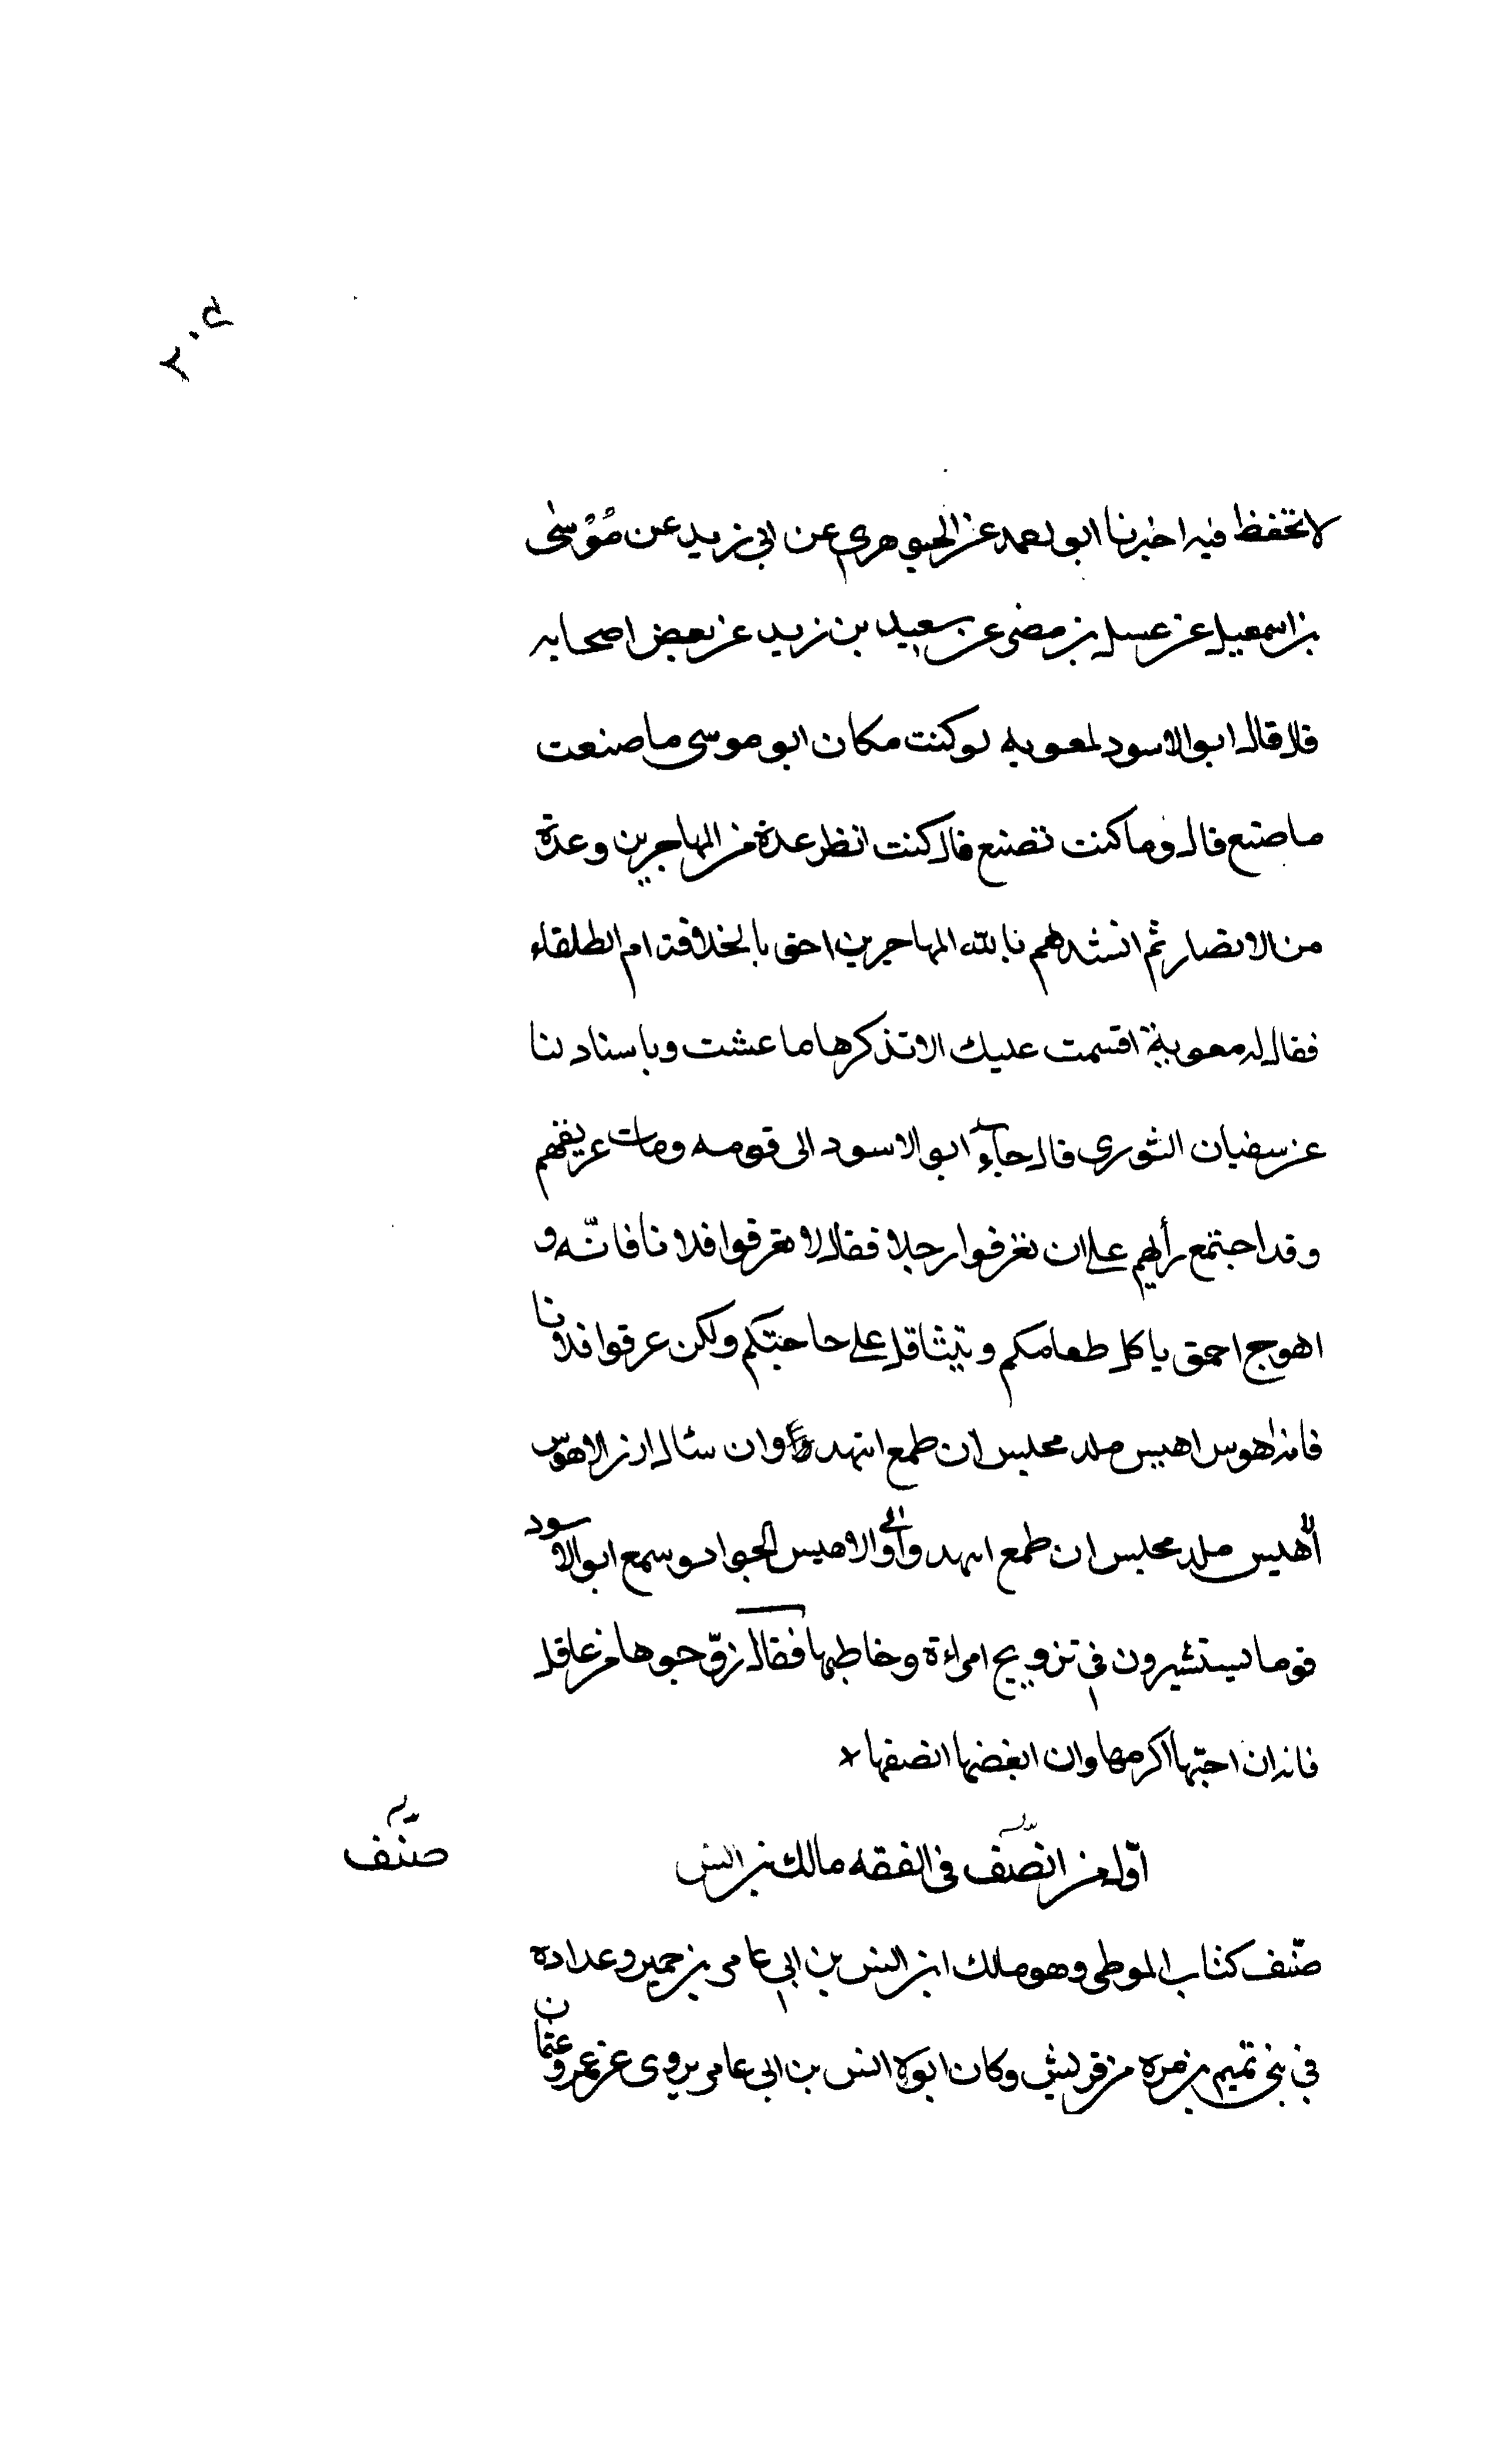 ٢٠٥
لا تحفظ فيه اخبرنا ابو احمد عن الجوهري عن ابي زيد عن مُوْسٰى
بن اسمعيل عن عسل بن مضى عن سعيد بن زيد عن بعض اصحابه
قال قال ابو الاسود لمعوية لو كنت مكان ابو موسى ما صنعت
ما صنع قال وما كنت تصنع قال كنت انظر عدة من المهاجرين وعدة
من الانصار ثم انشدهم بالله المهاجرين احق بالخلافة ام الطلقاء
فقال له معوية اقسمت عليك الا تذكرها ما عشت وباسناد لنا
عن سفيان الثوري قال جاء ابو الاسود الى قومه ومات عريفهم
وقد اجتمع رأيهم على ان يعرفوا رجلا فقال لا تعرفوا فلانا فانّه و
اهوج احمق ياكل طعامكم ويتثاقل على حاجتكم ولكن عرفوا فلانا
فانه اهوس اهيس ملد محلبس ان طمع انتهد وان سئال ارز الاهوس
الاهيس ملد محلبس ان طمع انهد والاهيس الجواد وسمع ابو الاسود
قوما يستشيرون في تزويج امراءة وخاطبها فقال زوّجوها من عاقل
فانه ان احبّها اكرمها وان ابغضها انصفها
اوّل من انصف في الفقه مالك بن انس
صنّف
صنّف كتاب الموطى وهو مالك ابن انس بن ابي عامر بن حمير وعداده
في بني تميم بن مره من قريش وكان ابوه انس بن ابي عامر يروى عن عمر وعثمان